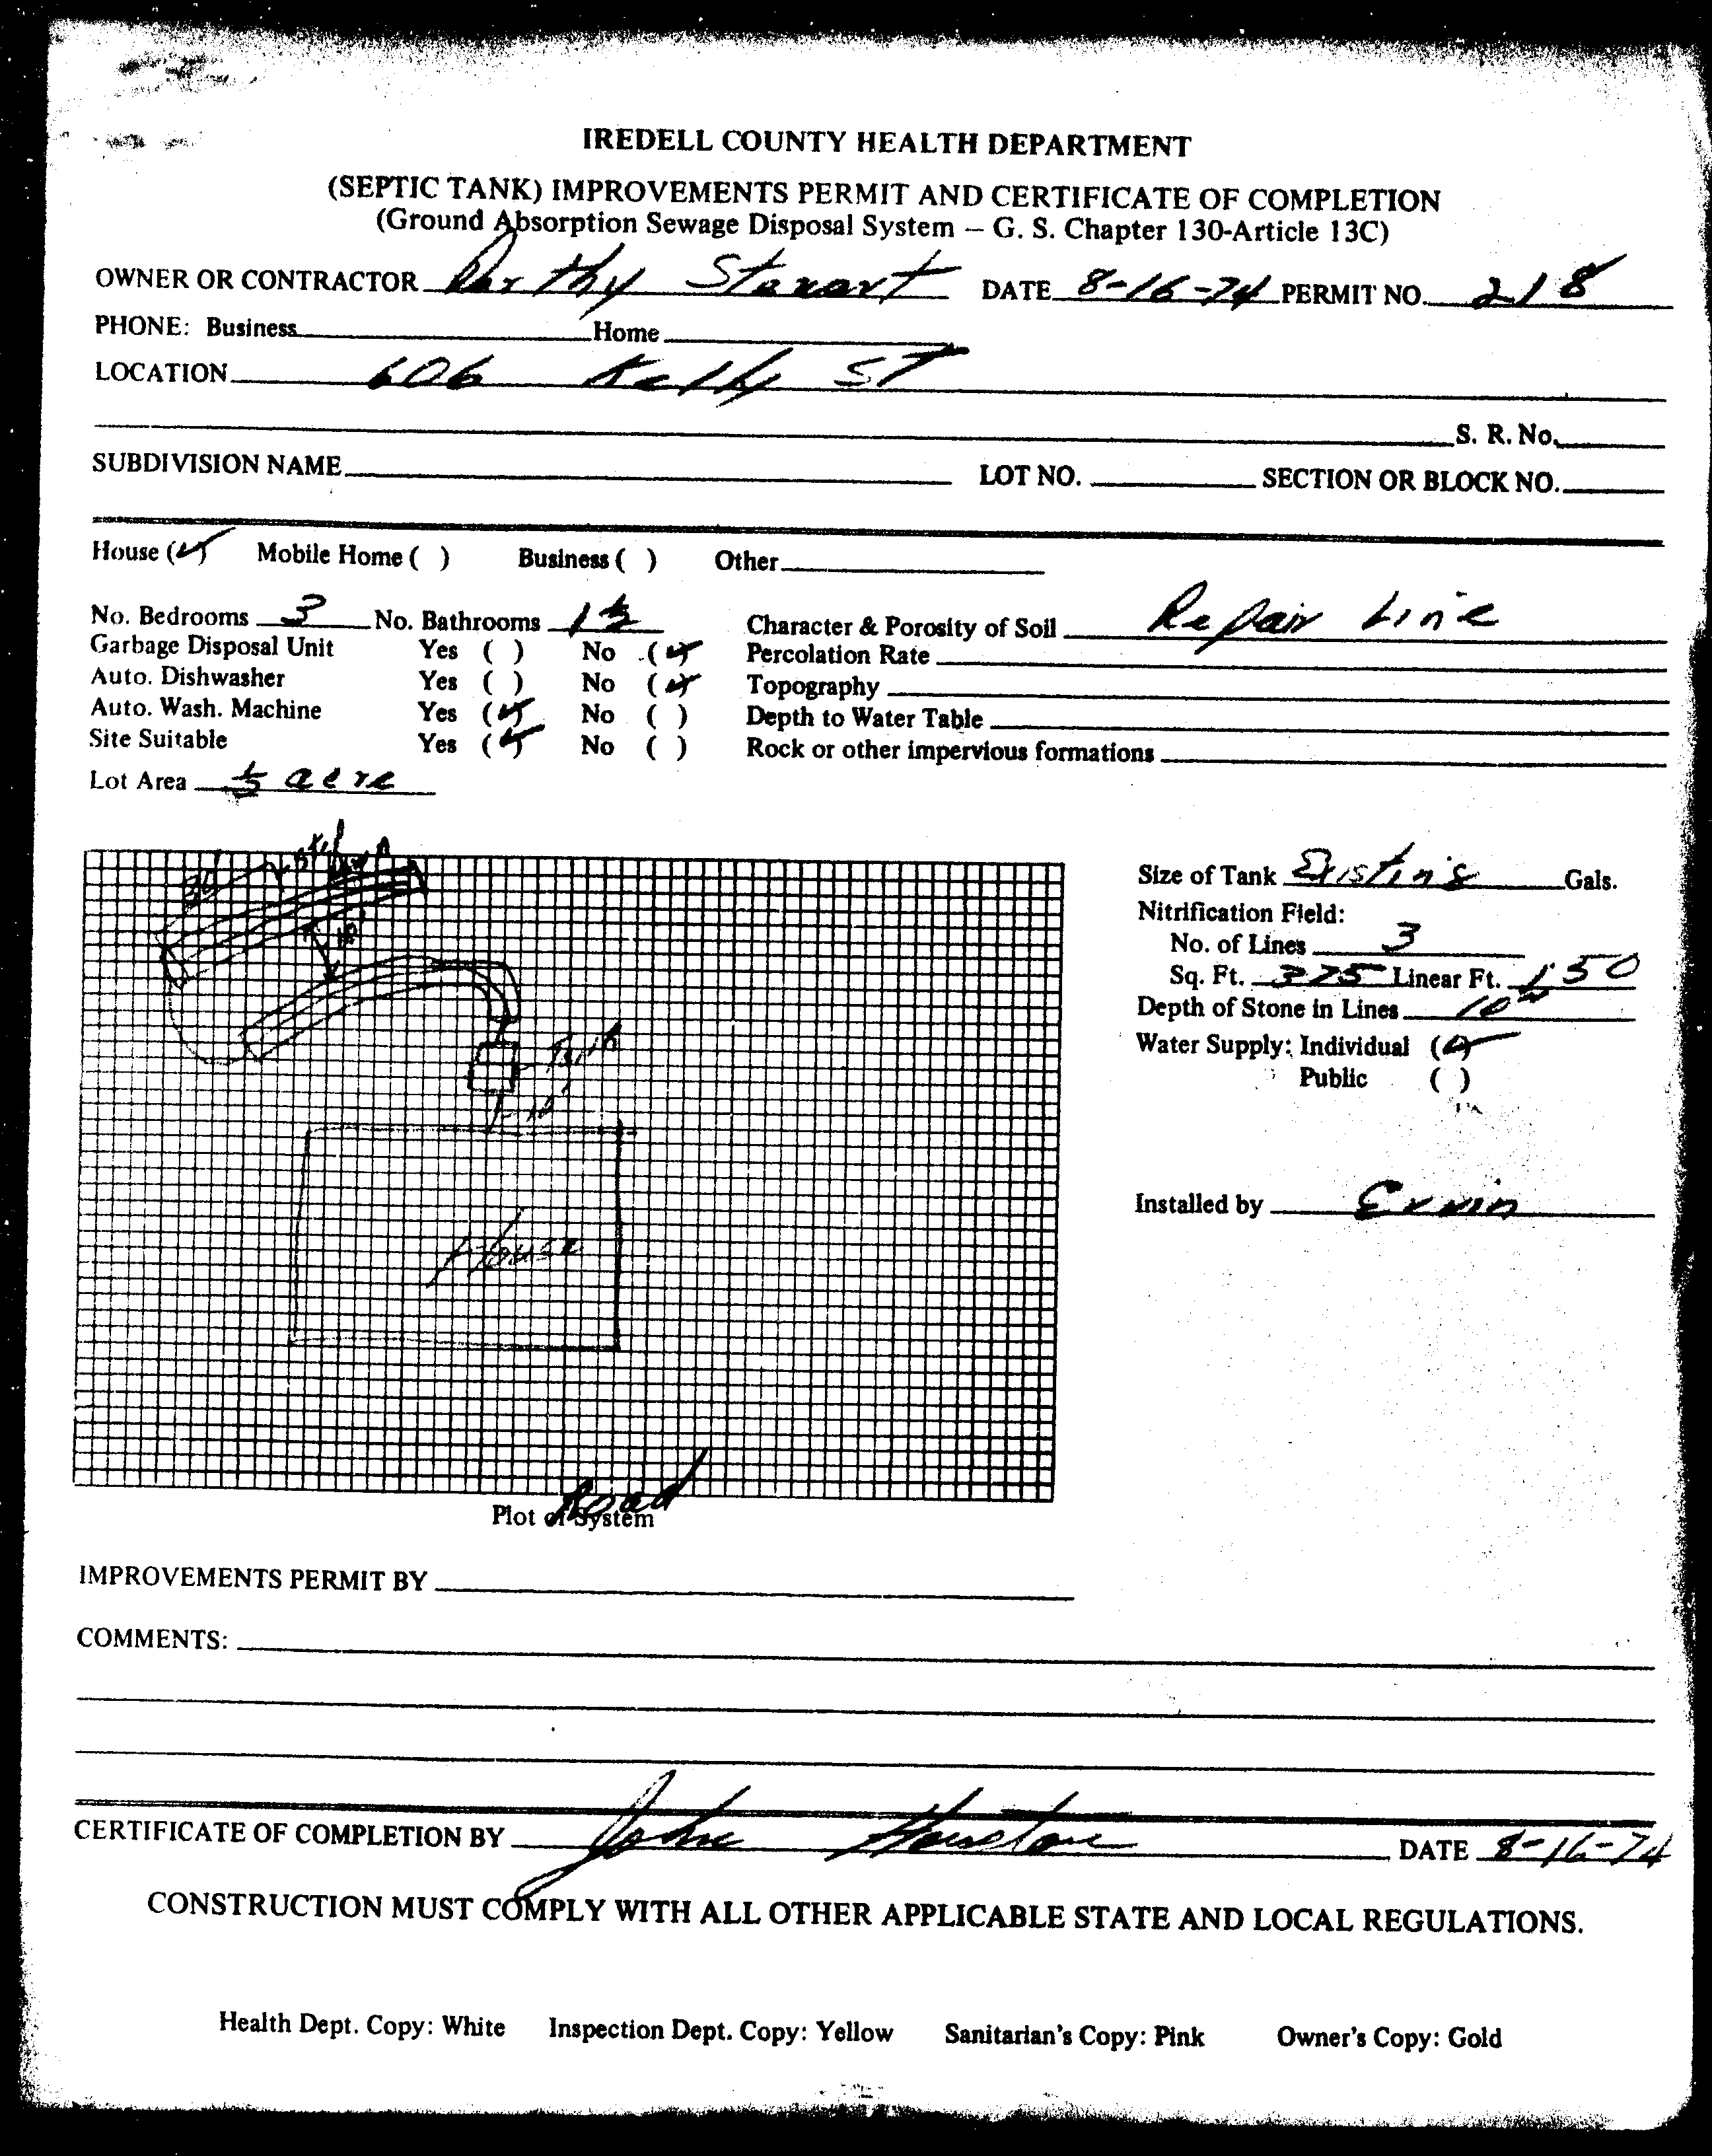 IREDELL COUNTY HEALTH DEPARTMENT
(SEPTIC TANK) IMPROVEMENTS PERMIT AND CERTIFICATE OF COMPLETION
(Ground Absorption Sewage Disposal System – G. S. Chapter 130-Article 13C)
OWNER OR CONTRACTOR Dorthy Stewart DATE 8-16-74 PERMIT NO. 218
PHONE: Business Home
LOCATION 606 Kelly ST
S. R. No.
SUBDIVISION NAME LOT NO. SECTION OR BLOCK NO.
House (✓) Mobile Home ( ) Business ( ) Other
No. Bedrooms 3 No. Bathrooms 1½ Character & Porosity of Soil Repair Line
Garbage Disposal Unit Yes ( ) No (✓) Percolation Rate
Auto. Dishwasher Yes ( ) No (✓) Topography
Auto. Wash. Machine Yes (✓) No ( ) Depth to Water Table
Site Suitable Yes (✓) No ( ) Rock or other impervious formations
Lot Area ½ acre
36
Tank
10'
House
Road
Plot of System
Size of Tank Existing Gals.
Nitrification Field:
No. of Lines 3
Sq. Ft. 375 Linear Ft. 150
Depth of Stone in Lines 10"
Water Supply: Individual (✓)
Public ( )
Installed by Ervin
IMPROVEMENTS PERMIT BY
COMMENTS:
CERTIFICATE OF COMPLETION BY John Houston DATE 8-16-74
CONSTRUCTION MUST COMPLY WITH ALL OTHER APPLICABLE STATE AND LOCAL REGULATIONS.
Health Dept. Copy: White Inspection Dept. Copy: Yellow Sanitarian's Copy: Pink Owner's Copy: Gold